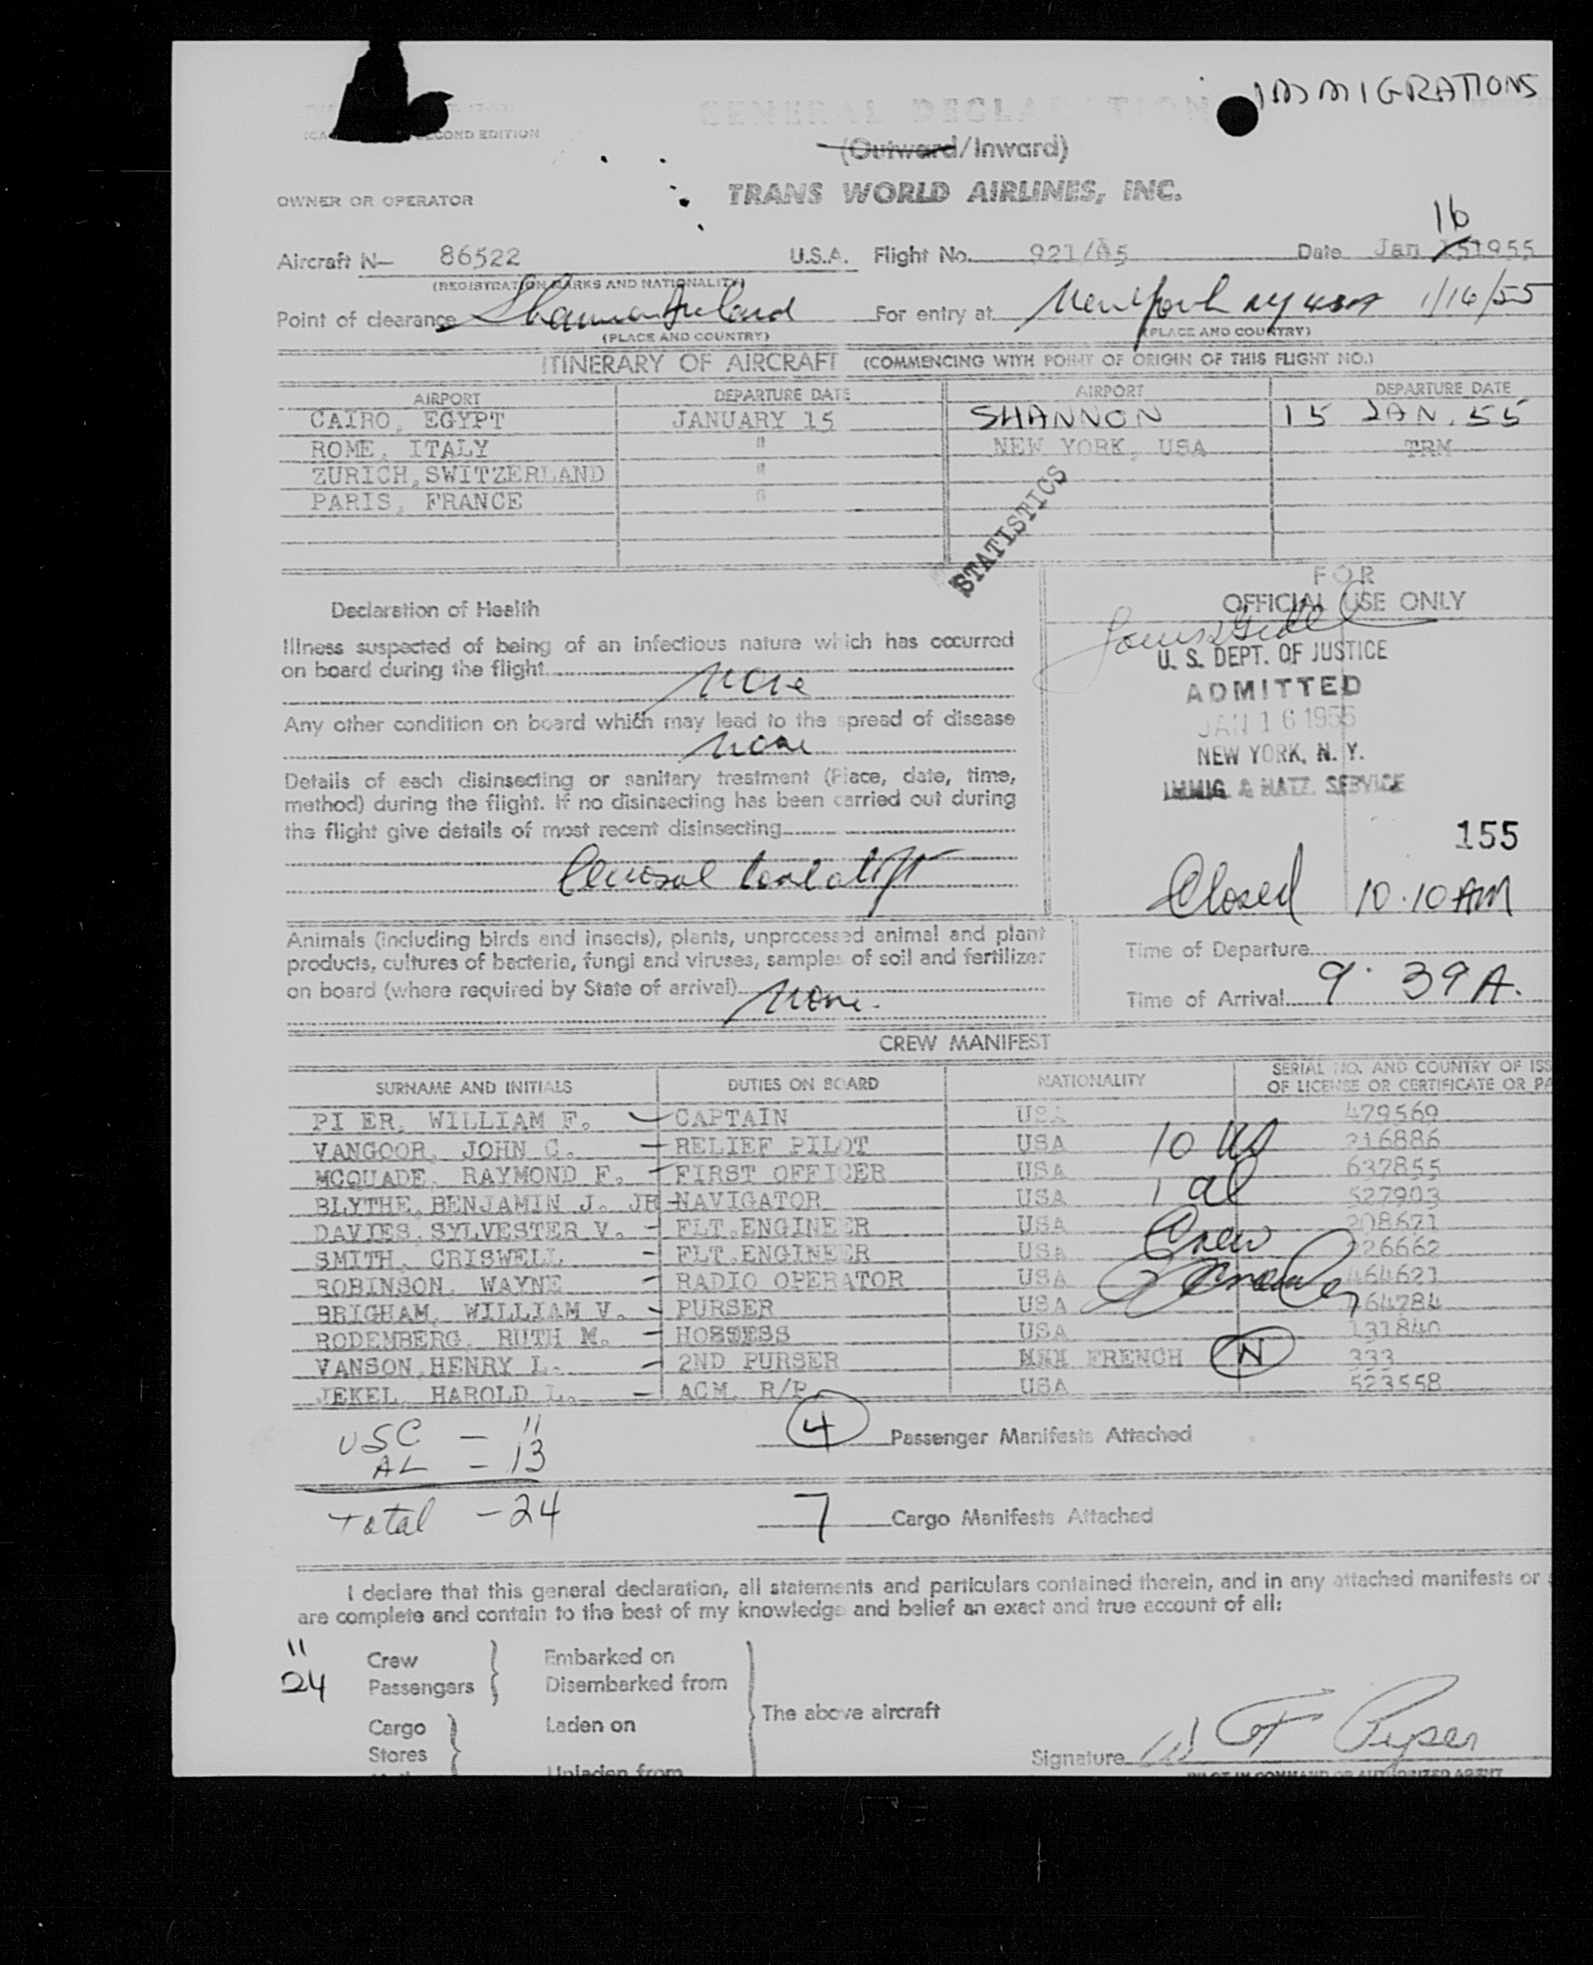 IMMIGRATIONS
GENERAL DECLARATION
SECOND EDITION
(Outward/Inward)
OWNER OR OPERATOR
TRANS WORLD AIRLINES, INC.
16
Aircraft N— 86522 U.S.A. Flight No. 921/A5 Date Jan 15 1955
(REGISTRATION MARKS AND NATIONALITY)
Point of clearance Shannon Ireland For entry at New York NY USA 1/16/55
(PLACE AND COUNTRY) (PLACE AND COUNTRY)
ITINERARY OF AIRCRAFT (COMMENCING WITH POINT OF ORIGIN OF THIS FLIGHT NO.)
AIRPORT DEPARTURE DATE AIRPORT DEPARTURE DATE
CAIRO, EGYPT JANUARY 15 SHANNON 15 JAN. 55
ROME, ITALY " NEW YORK, USA TRM
ZURICH, SWITZERLAND "
PARIS, FRANCE "
STATISTICS
FOR
OFFICIAL USE ONLY
Declaration of Health
Illness suspected of being of an infectious nature which has occurred
on board during the flight None
Any other condition on board which may lead to the spread of disease
None
Details of each disinsecting or sanitary treatment (Place, date, time,
method) during the flight. If no disinsecting has been carried out during
the flight give details of most recent disinsecting
U. S. DEPT. OF JUSTICE
ADMITTED
JAN 16 1955
NEW YORK, N. Y.
IMMIG & NATZ. SERVICE
155
Closed 10.10 AM
Animals (including birds and insects), plants, unprocessed animal and plant
products, cultures of bacteria, fungi and viruses, samples of soil and fertilizer
on board (where required by State of arrival) None.
Time of Departure
Time of Arrival 9. 39 A.
CREW MANIFEST
SURNAME AND INITIALS DUTIES ON BOARD NATIONALITY SERIAL NO. AND COUNTRY OF ISS
OF LICENSE OR CERTIFICATE OR PA
PI ER, WILLIAM F. CAPTAIN USA 479569
VANGOOR, JOHN C. RELIEF PILOT USA 316886
MCQUADE, RAYMOND F. FIRST OFFICER USA 637855
BLYTHE, BENJAMIN J. JR NAVIGATOR USA 527903
DAVIES, SYLVESTER V. FLT.ENGINEER USA 208671
SMITH, CRISWELL FLT.ENGINEER USA 26662
ROBINSON, WAYNE RADIO OPERATOR USA 464621
BRIGHAM, WILLIAM V. PURSER USA 64784
RODEMBERG, RUTH M. HOSTESS USA 131840
VANSON, HENRY L. 2ND PURSER FRENCH N 333
JEKEL, HAROLD L. ACM, R/P USA 523558
10 US
1 al
Crew
USC — 11
AL — 13
Total — 24
4 Passenger Manifests Attached
7 Cargo Manifests Attached
I declare that this general declaration, all statements and particulars contained therein, and in any attached manifests or
are complete and contain to the best of my knowledge and belief an exact and true account of all:
11 Crew Embarked on
24 Passengers Disembarked from
The above aircraft
Cargo Laden on
Stores
Unladen from
Signature W F Pyper
PILOT IN COMMAND OR AUTHORIZED AGENT